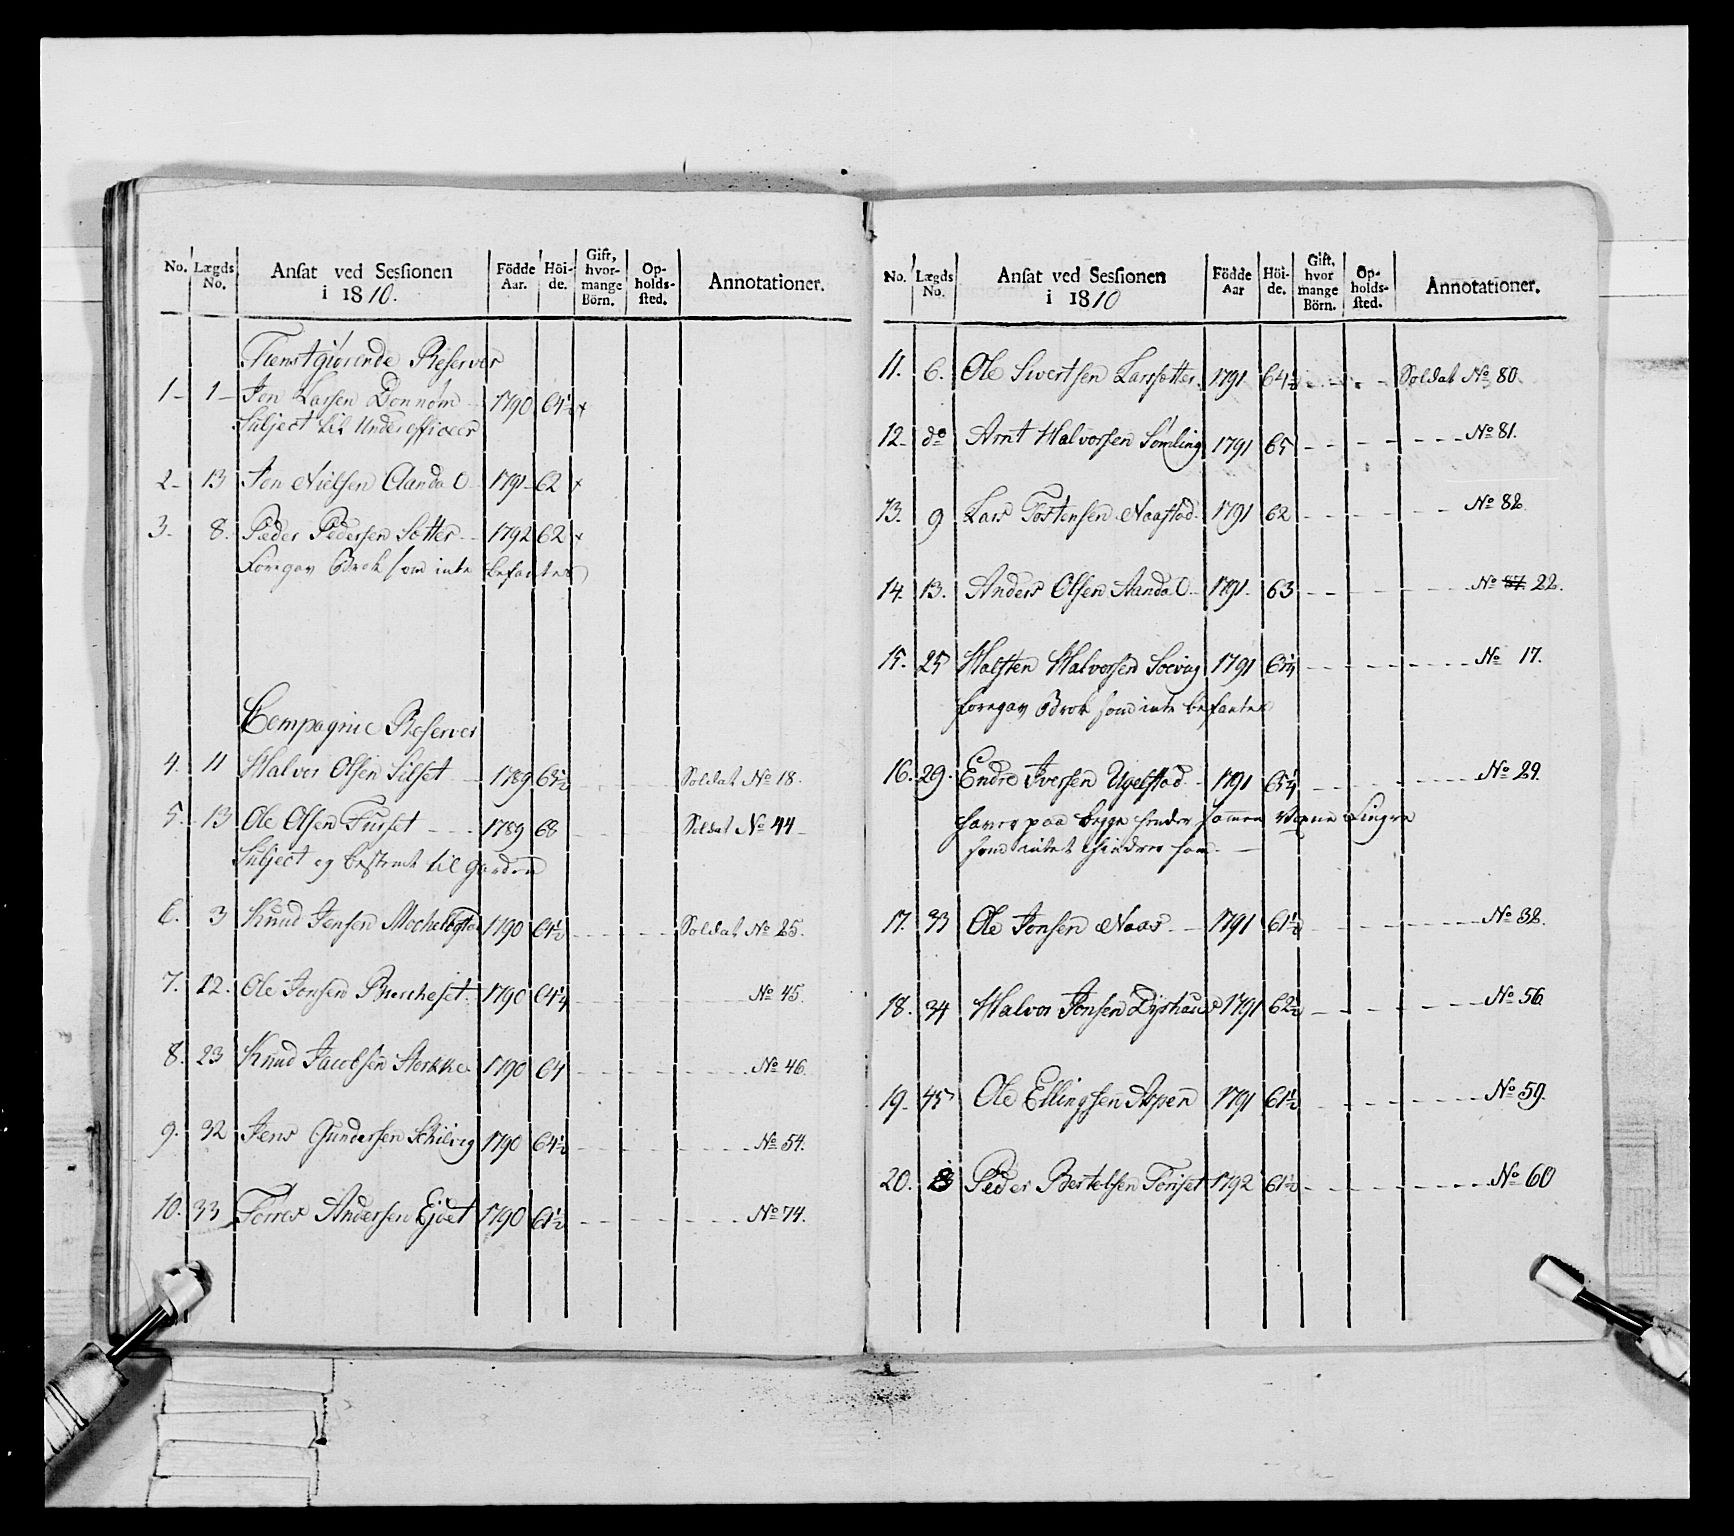 No. Lægds No. Ansat ved Sessionen i 1810. Födde Aar. Höi-de. Gift, hvor-mange Börn. Op-holds-sted. Annotationer.
Tienstgiörende Reserver
1 - 1 - Jon Larsen Donnem 1790 64½ x
Subject til Underofficeer
2 - 13 Jon Nielsen Aandal 1791 62 x
3 - 8. Peder Pedersen Sotter 1792 62 x
foregav Brok som inte befantes
Compagnie Reserver
4. 11 Halvor Olsen Silset 1789 63½ Soldat No 18.
5. 13 Ole Olsen Furset 1789 68 Soldat No 44
Subject og bestemt til Garden
6. 3 Knud Jensen 1790 64½ Soldat No 25.
7. 12. Ole Jonsen 1790 64¼ No 45.
8. 23 Knud Jacobsen 1790 64 No 46.
9. 32 Jens Gundersen 1790 64½ No 54.
10. 33 Torres Andersen Ejdet 1790 61½ No 74.
No. Lægds No. Ansat ved Sessionen i 1810 Födde Aar Höi-de. Gift, hvor mange Börn. Op-holds-sted. Annotationer.
11. 6. Ole Sivertsen Larssetter 1791 64½ Soldat No 80.
12 - do Arnt Halvorsen 1791 65 No 81.
13. 9 Lars Tostensen Naastad 1791 62 No 82.
14. 13. Anders Olsen Aandal 1791. 63 No 87. 22.
15. 25 Halsten Halvorsen 1791 No 17.
foregav Brok som inte befantes
16. 29. Endre Iversen Ugelstad 1791 No 29.
haver paa begge hender sammen Voxne Fingre
som intet hindrer ham.
17. 33 Ole Jonsen Naas 1791 61½ No 32.
18. 34 Halvor Jonsen 1791 62½ No 56
19. 45 Ole Ellingsen Aspen 1791 61½ No 59.
20. Peder Bertelsen Torset 1792 61½ No 60